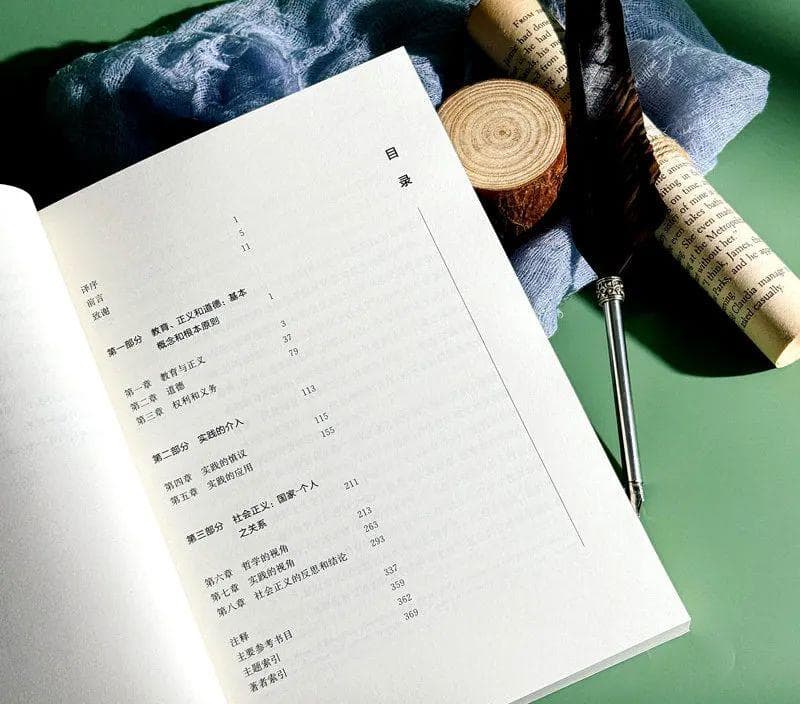 目录
译序 1
前言 5
致谢 11
第一部分 教育、正义和道德：基本
概念和根本原则 1
第一章 教育与正义 3
第二章 道德 37
第三章 权利和义务 79
第二部分 实践的介入 113
第四章 实践的慎议 115
第五章 实践的应用 155
第三部分 社会正义：国家-个人
之关系 211
第六章 哲学的视角 213
第七章 实践的视角 263
第八章 社会正义的反思和结论 293
注释 337
主要参考书目 359
主题索引 362
著者索引 369
on time,
of mine a
even takes
She even
the Metropolit
without her."
"I think, James, th
Parks, and he
Claudia manag
casually.